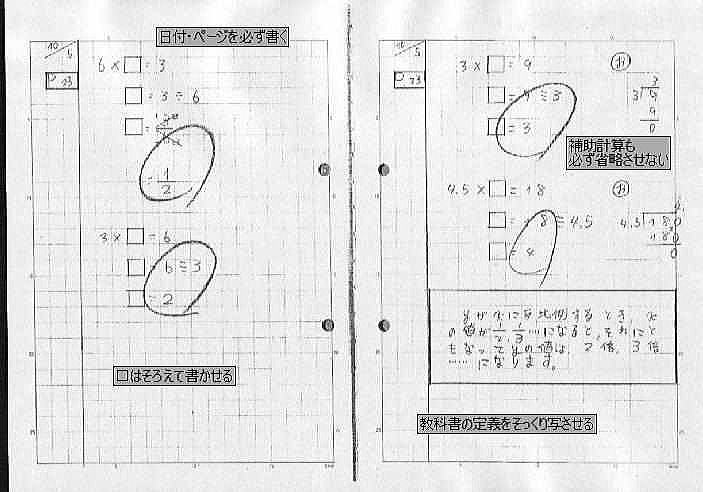 日付・ページを必ず書く
10/5
P 73
6 × □ = 3
□ = 3 ÷ 6
□ =
= 1/2
3 × □ = 6
□ = 6 ÷ 3
□ = 2
□はそろえて書かせる
10/5
P 73
3 × □ = 9
□ = 9 ÷ 3
□ = 3
3
3 9
9
0
補助計算も
必ず省略させない
4.5 × □ = 18
□ = 18 ÷ 4.5
□ = 4
4.5 18.0
18 0
0
yがxに反比例するとき、x
の値が1/2、1/3……になると、それにと
もなってyの値は、2倍、3倍
……になります。
教科書の定義をそっくり写させる